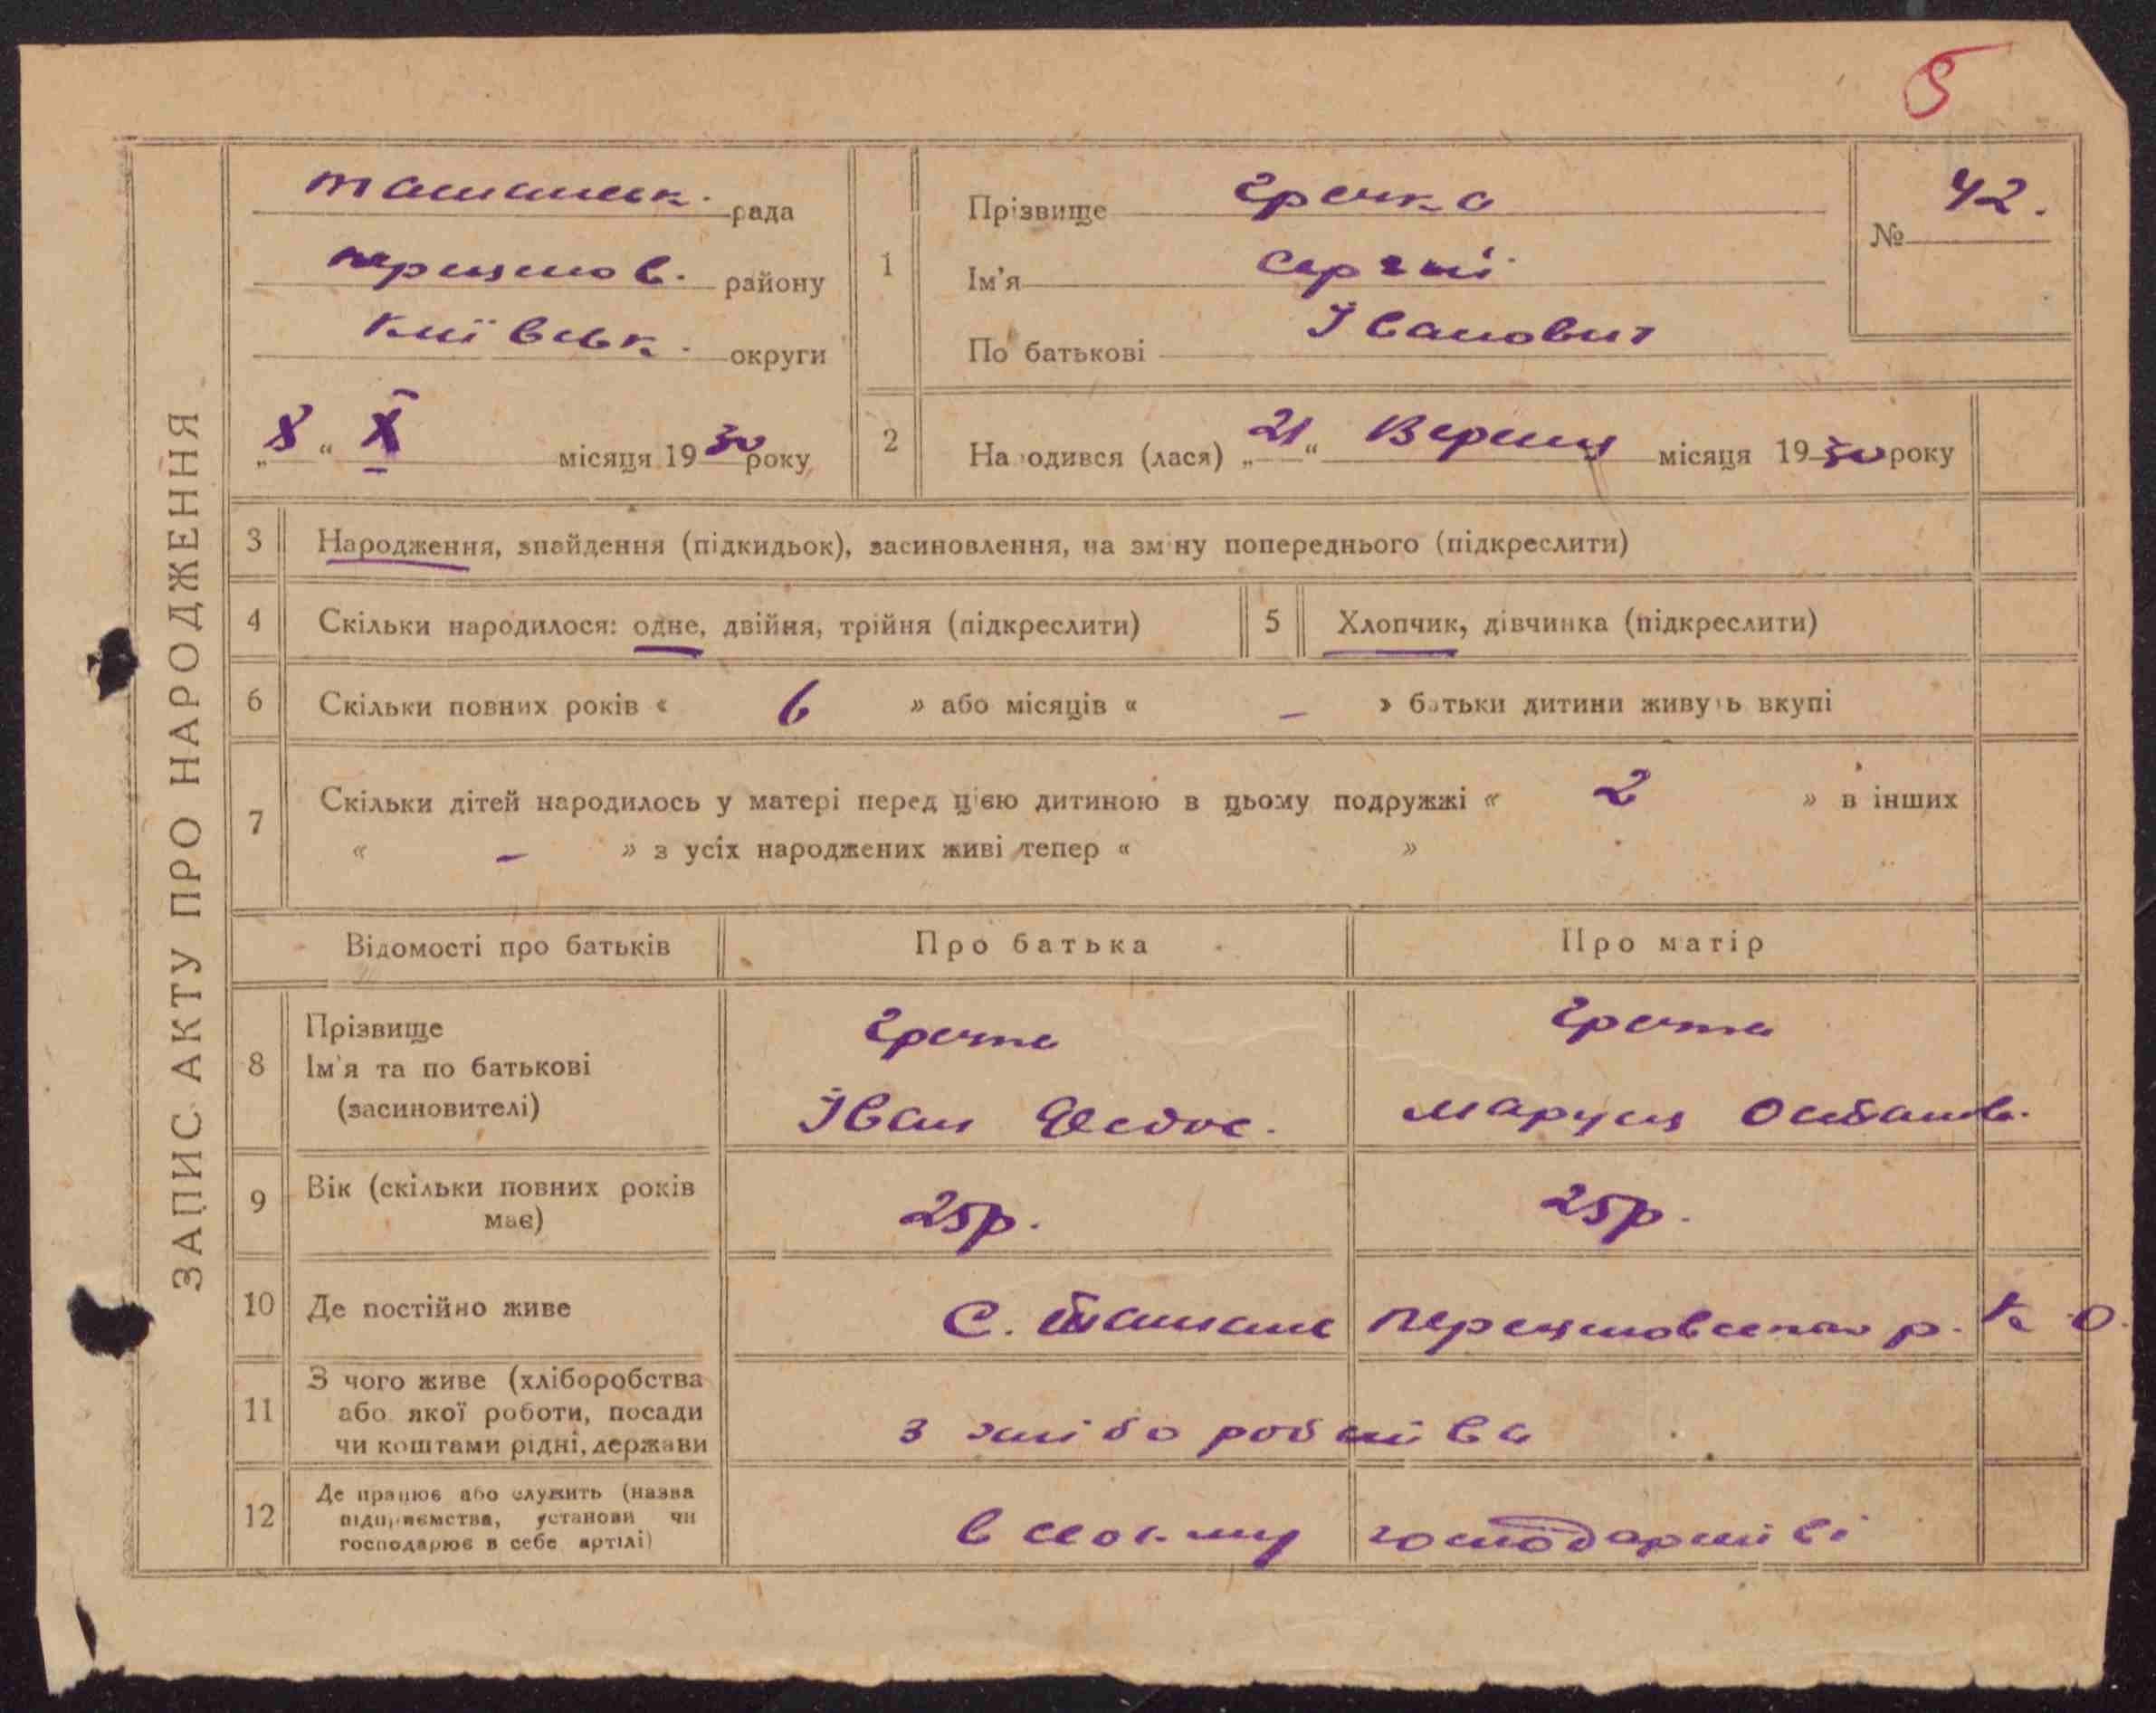 5
ЗАПИС АКТУ ПРО НАРОДЖЕННЯ
Ташанськ. рада
Переяслов. району
Київськ. округи
„8“ X місяця 1930 року
1
Прізвище Гречка
Ім'я Сергій
По батькові Іванович
№ 42.
2 Народився (лася) „21“ Вересня місяця 1930 року
3 Народження, знайдення (підкидьок), засиновлення, на зміну попереднього (підкреслити)
4 Скільки народилося: одне, двійня, трійня (підкреслити)
5 Хлопчик, дівчинка (підкреслити)
6 Скільки повних років « 6 » або місяців « – » батьки дитини живуть вкупі
7 Скільки дітей народилось у матері перед цією дитиною в цьому подружжі « 2 » в інших
« – » з усіх народжених живі тепер « »
Відомості про батьків Про батька Про матір
8
Прізвище
Ім'я та по батькові
(засиновителі)
Гречка
Іван Федос.
Гречка
Маруся Остапов.
9 Вік (скільки повних років
має)
25р. 25р.
10 Де постійно живе С. Ташань Переясловського р. К. О.
11 З чого живе (хліборобства
або якої роботи, посади
чи коштами рідні, держави
з хліборобства
12 Де працює або служить (назва
підприємства, установи чи
господарює в себе артілі)
в своєму господарстві